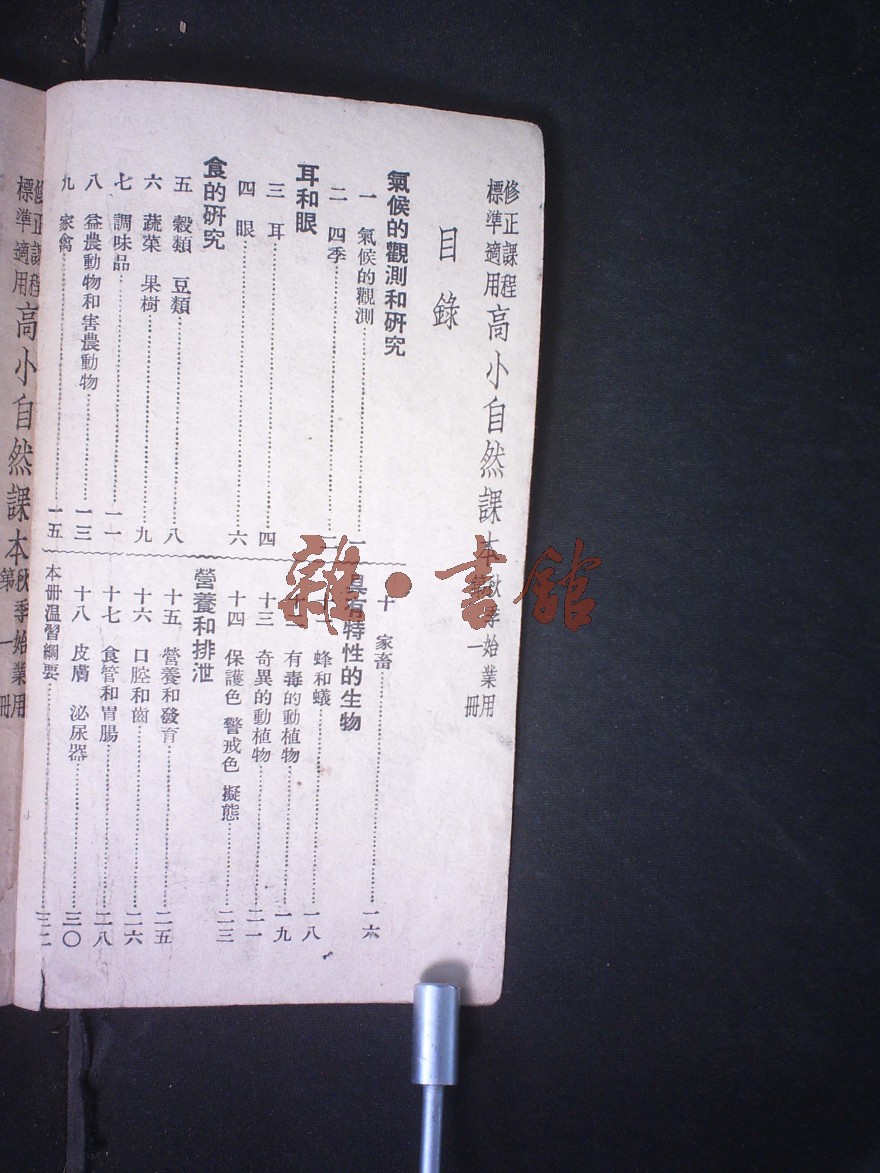 修正課程標準適用 高小自然課本 秋季始業用 第一冊
目錄
氣候的觀測和研究
一 氣候的觀測……一
二 四季……二
耳和眼
三 耳……四
四 眼……六
食的研究
五 穀類 豆類……八
六 蔬菜 果樹……九
七 調味品……一一
八 益農動物和害農動物……一三
九 家禽……一五
十 家畜……一六
具有特性的生物
十一 蜂和蟻……一八
十二 有毒的動植物……一九
十三 奇異的動植物……二一
十四 保護色 警戒色 擬態……二三
營養和排泄
十五 營養和發育……二五
十六 口腔和齒……二六
十七 食管和胃腸……二八
十八 皮膚 泌尿器……三〇
本冊温習綱要……三二
修正課程標準適用 高小自然課本 秋季始業用 第一冊
雜·書館